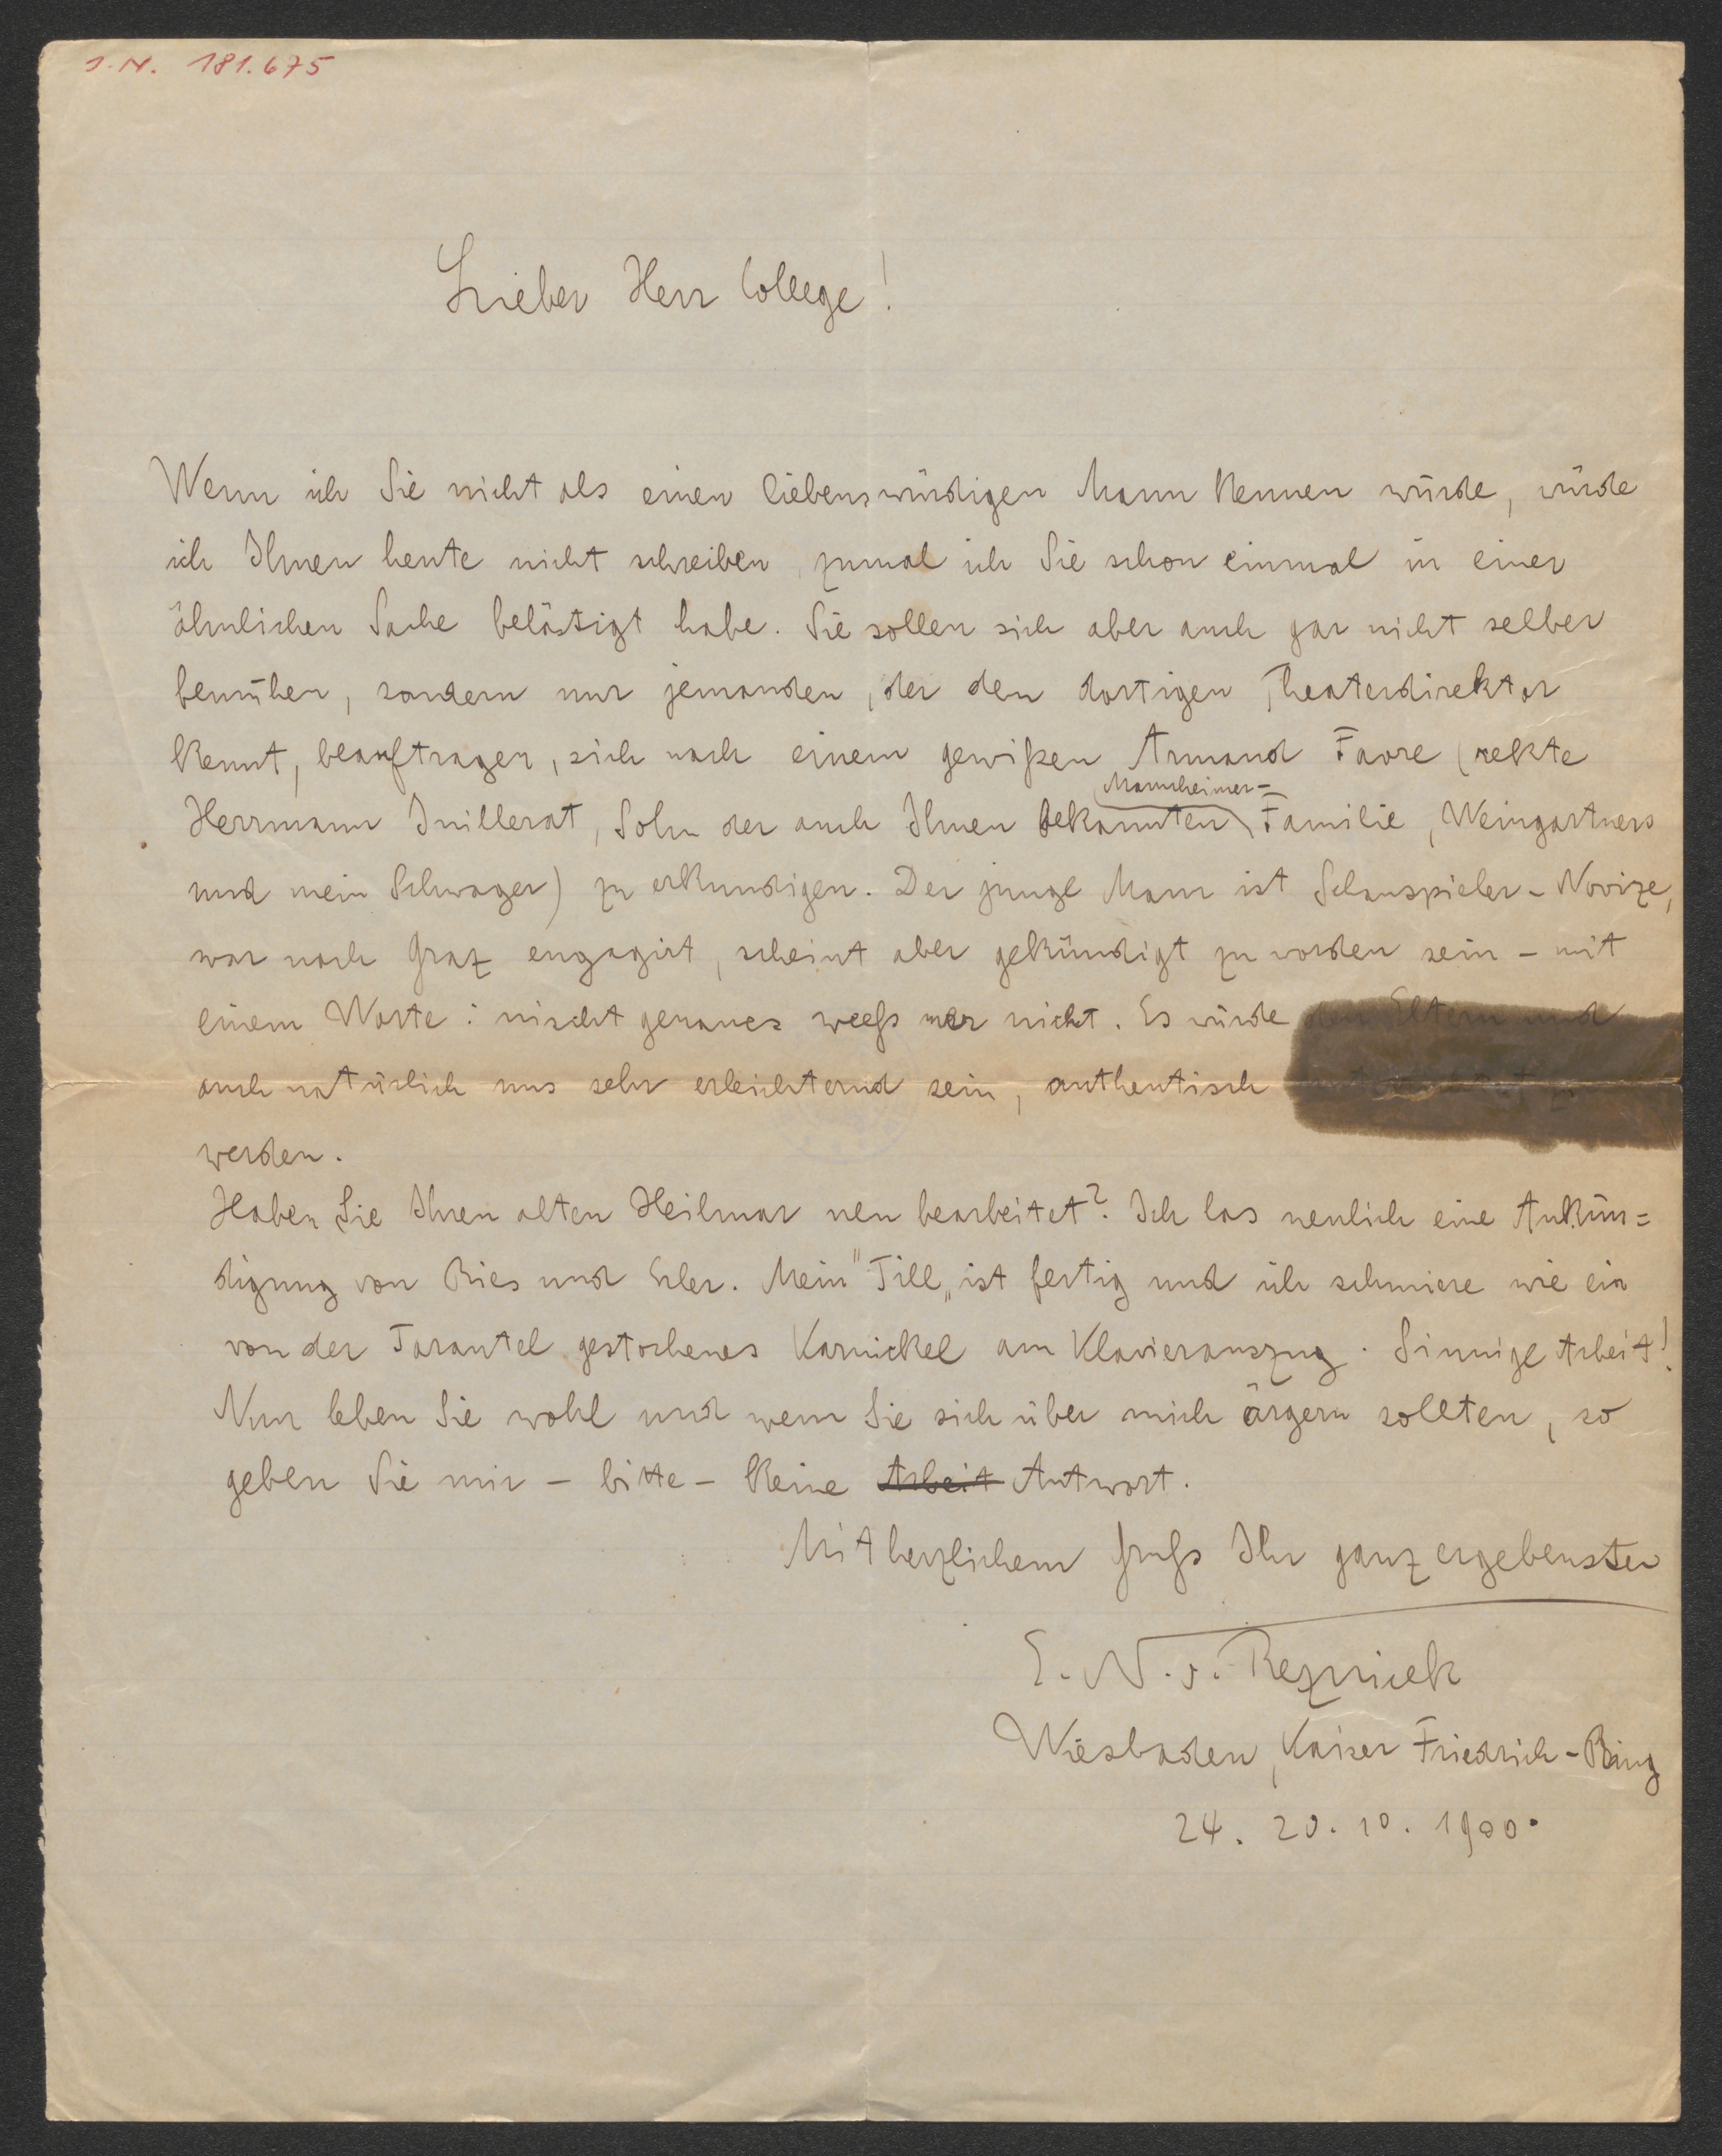 J. N. 181.675
Lieber Herr College!
Wenn ich Sie nicht als einen liebenswürdigen Mann kennen würde, würde
ich Ihnen heute nicht schreiben, zumal ich Sie schon einmal in einer
ähnlichen Sache belästigt habe. Sie sollen sich aber auch gar nicht selber
bemühen, sondern nur jemanden, der den dortigen Theaterdirektor
kennt, beauftragen, sich nach einem gewißen Armand Favre (rekte
Mannheimer-
Herrmann Juillerat, Sohn der auch Ihnen bekannten Familie, Weingartners
und mein Schwager) zu erkundigen. Der junge Mann ist Schauspieler-Novize,
war nach Graz engagirt, scheint aber gekündigt zu worden sein - mit
einem Worte: nischt genaues weeß mer nicht. Es würde den Eltern und
auch natürlich uns sehr erleichternd sein, authentisch
werden.
Haben Sie Ihren alten Heilmar neu bearbeitet? Ich las neulich eine Ankün=
digung von Ries und Erler. Mein "Till" ist fertig und ich schmiere wie ein
von der Tarantel gestochenes Karnickel am Klavierauszug. Sinnige Arbeit!
Nun leben Sie wohl und wenn Sie sich über mich ärgern sollten, so
geben Sie mir - bitte - keine Arbeit Antwort.
Mit herzlichem Gruß Ihr ganz ergebenster
E. N. v. Reznicek
Wiesbaden, Kaiser Friedrich-Ring
24. 20. 10. 1900.